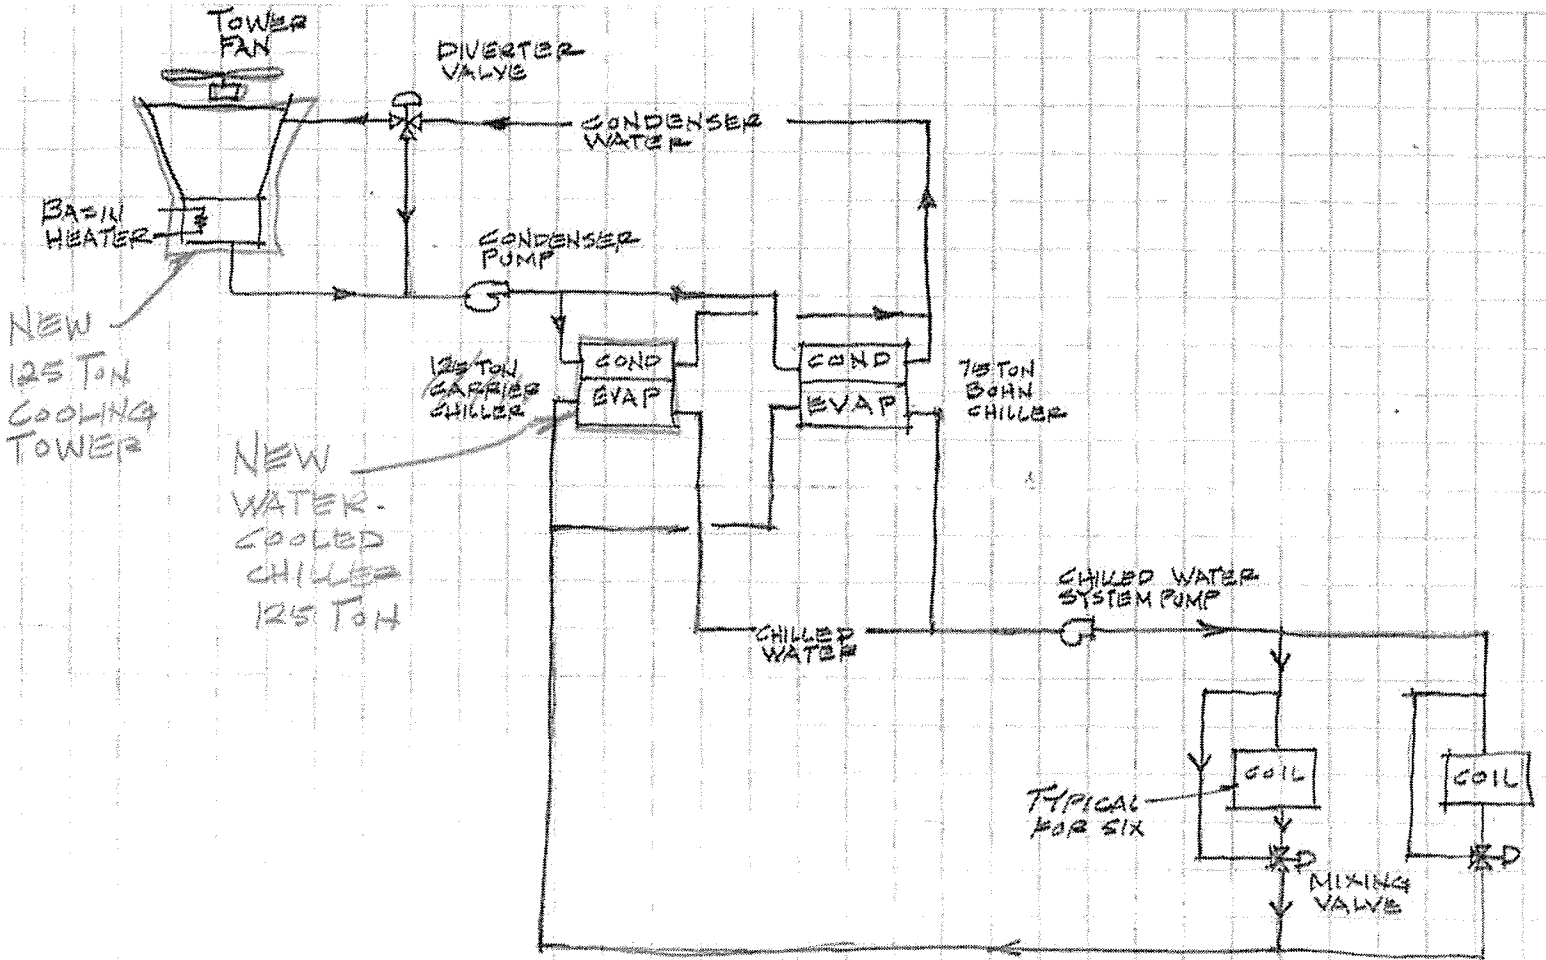 TOWER
FAN
DIVERTER
VALVE
CONDENSER
WATER
BASIN
HEATER
CONDENSER
PUMP
NEW
125 TON
COOLING
TOWER
125 TON
CARRIER
CHILLER
COND
EVAP
COND
EVAP
75 TON
BOHN
CHILLER
NEW
WATER-
COOLED
CHILLER
125 TON
CHILLED WATER
SYSTEM PUMP
CHILLED
WATER
COIL
COIL
TYPICAL
FOR SIX
MIXING
VALVE